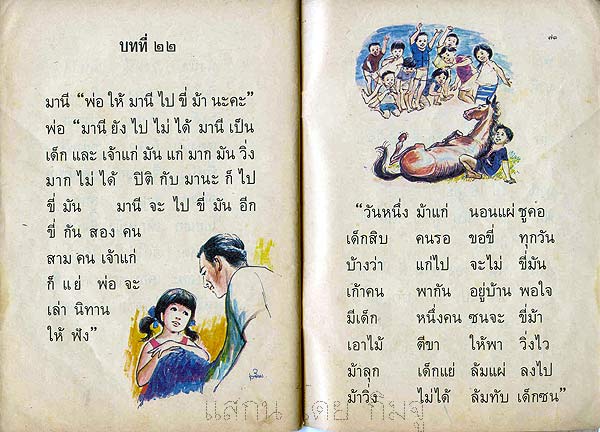 บทที่ ๒๒
มานี “พ่อ ให้ มานี ไป ขี่ ม้า นะคะ”
พ่อ “มานี ยัง ไป ไม่ ได้ มานี เป็น
เด็ก และ เจ้าแก่ มัน แก่ มาก มัน วิ่ง
มาก ไม่ ได้ ปิติ กับ มานะ ก็ ไป
ขี่ มัน มานี จะ ไป ขี่ มัน อีก
ขี่ กัน สอง คน
สาม คน เจ้าแก่
ก็ แย่ พ่อ จะ
เล่า นิทาน
ให้ ฟัง”
๗๓
“วันหนึ่ง ม้าแก่ นอนแผ่ ชูคอ
เด็กสิบ คนรอ ขอขี่ ทุกวัน
บ้างว่า แก่ไป จะไม่ ขี่มัน
เก้าคน พากัน อยู่บ้าน พอใจ
มีเด็ก หนึ่งคน ซนจะ ขี่ม้า
เอาไม้ ตีขา ให้พา วิ่งไว
ม้าลุก เด็กแย่ ล้มแผ่ ลงไป
ม้าวิ่ง ไม่ได้ ล้มทับ เด็กซน”
แสกน โดย กิมจู